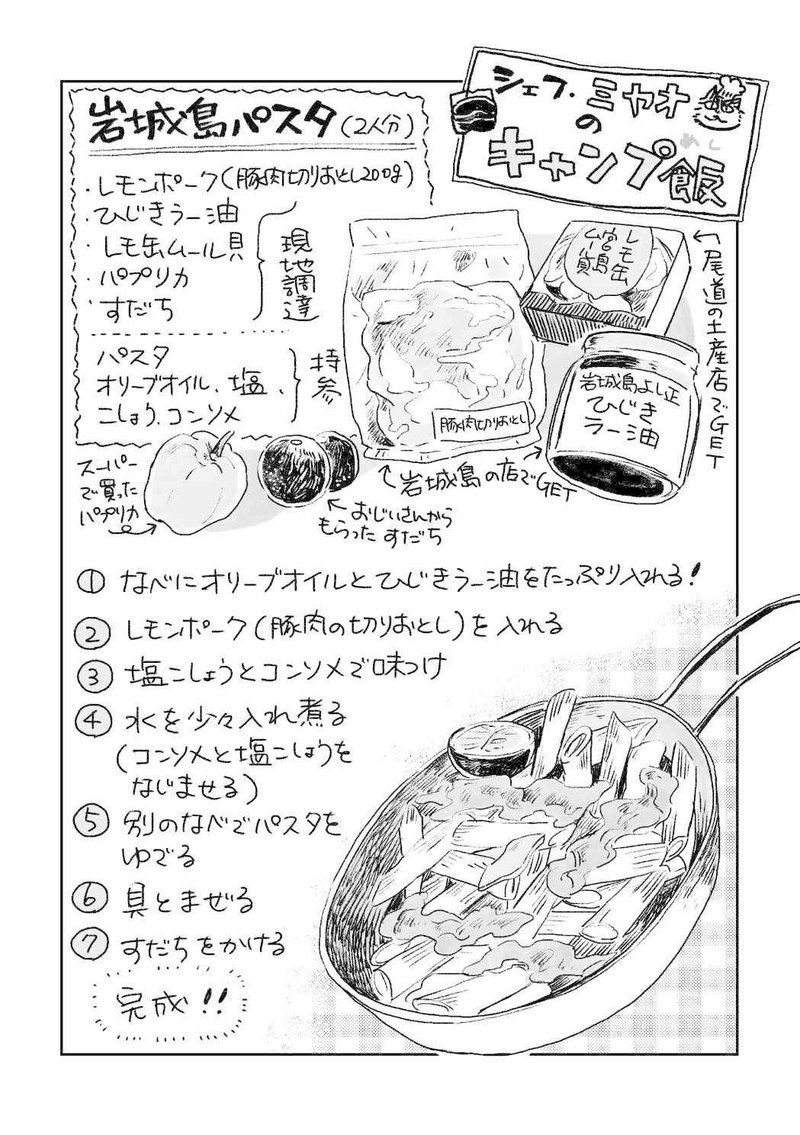 シェフ・ミヤオ
の
キャンプ飯
めし
岩城島パスタ(2人分)
・レモンポーク(豚肉切りおとし200g)
・ひじきラー油
・レモ缶ムール貝
・パプリカ
・すだち
現地調達
パスタ
オリーブオイル、塩、
こしょう、コンソメ
持参
レモ缶
宮島
ムール貝
←尾道の土産店でGET
岩城島よし正
ひじき
ラー油
豚肉切りおとし
岩城島の店でGET
スーパー
で買った
パプリカ
←おじいさんから
もらったすだち
① なべにオリーブオイルとひじきラー油をたっぷり入れる!
② レモンポーク(豚肉の切りおとし)を入れる
③ 塩こしょうとコンソメで味つけ
④ 水を少々入れ煮る
(コンソメと塩こしょうを
なじませる)
⑤ 別のなべでパスタを
ゆでる
⑥ 具とまぜる
⑦ すだちをかける
完成!!